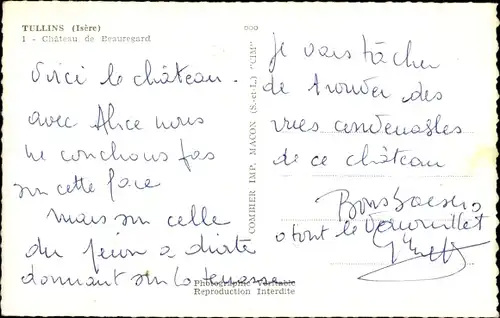 TULLINS (Isère)
1 - Château de Beauregard
Voici le château
avec Alice nous
ne couchons pas
sur cette face
mais sur celle
du
à droite
donnant sur la terrasse
Photographie Véritable
Reproduction Interdite
COMBIER IMP. MACON (S.-et-L.) "CIM"
Je vais tâcher
de trouver des
vues convenables
de ce château
Bons baisers
a tout le